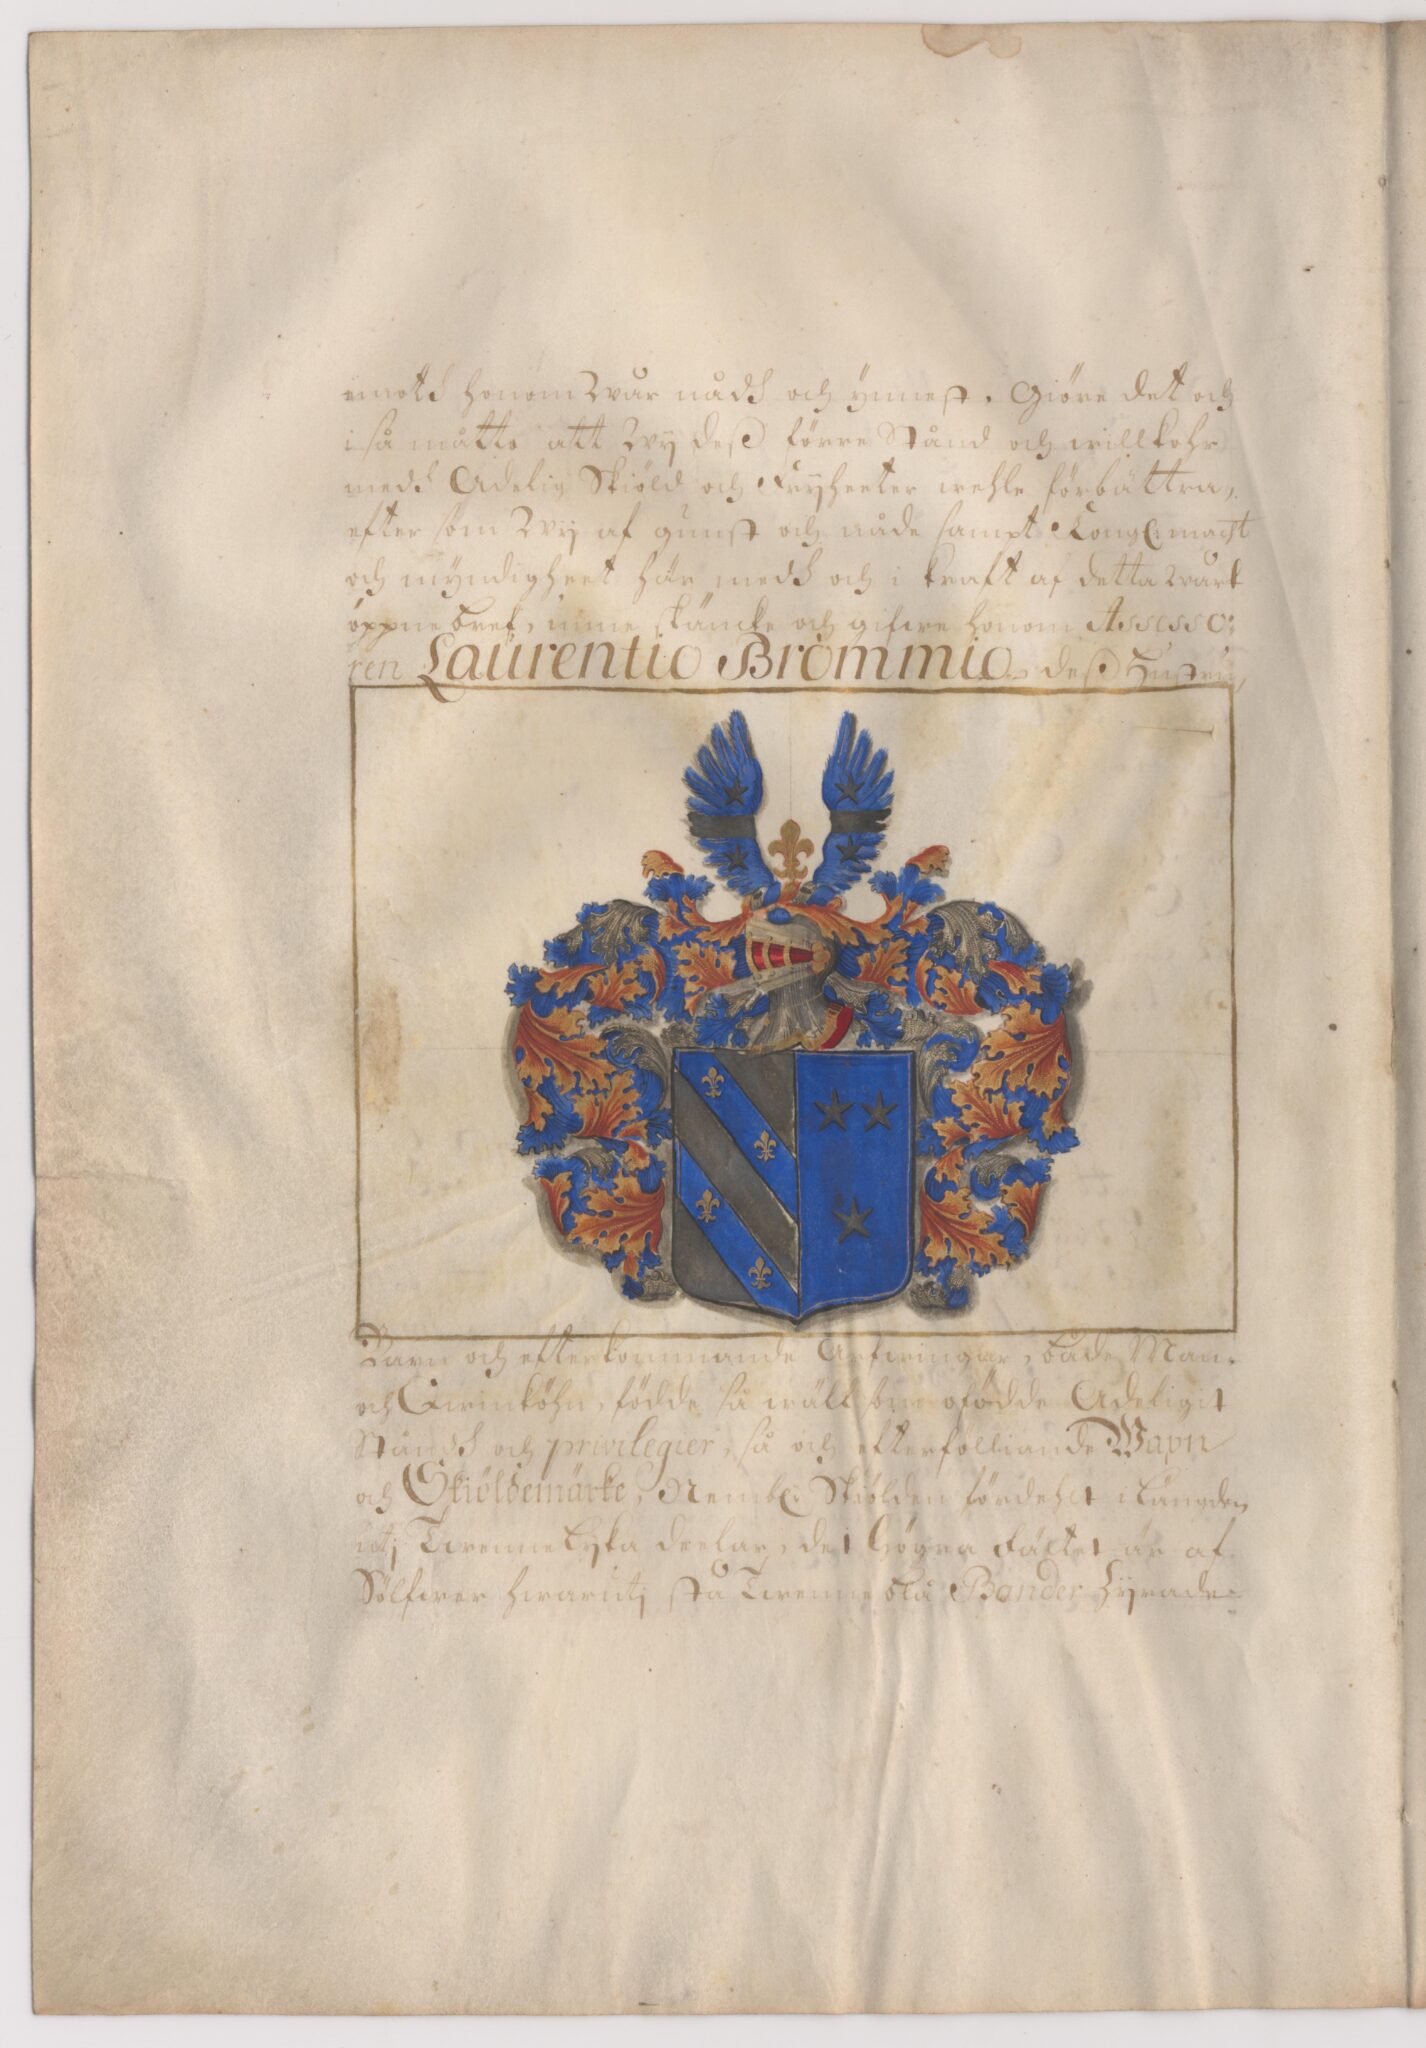 emoth honom Wår nådh och ynnest. Giöre det och
i så måtto att Wij deß förre Stånd och willkohr
medh Adelig Skiöld och Frijheeter wehle förbättra,
efter som Wij af gunst och nåde sampt Kongl: macht
och myndigheet här medh och i kraft af detta Wårt
öppne bref, unne skäncke och gifwe honom Assesso:
ren Laurentio Brommio, deß Hustru,
Barn och efterkommande Arfwingar, både Man-
och Qwinköhn, födde så wäll som ofödde Adeligit
Ståndh och privilegier, så och efterfölliande Wapn
och Skiöldemärke, Nembl: Skiölden fördehlt i Längden
uti Twenne Lyka deelar, det högra Fältet är af
Sölfwer hwarutj stå Twenne blå Bander Hyrade-